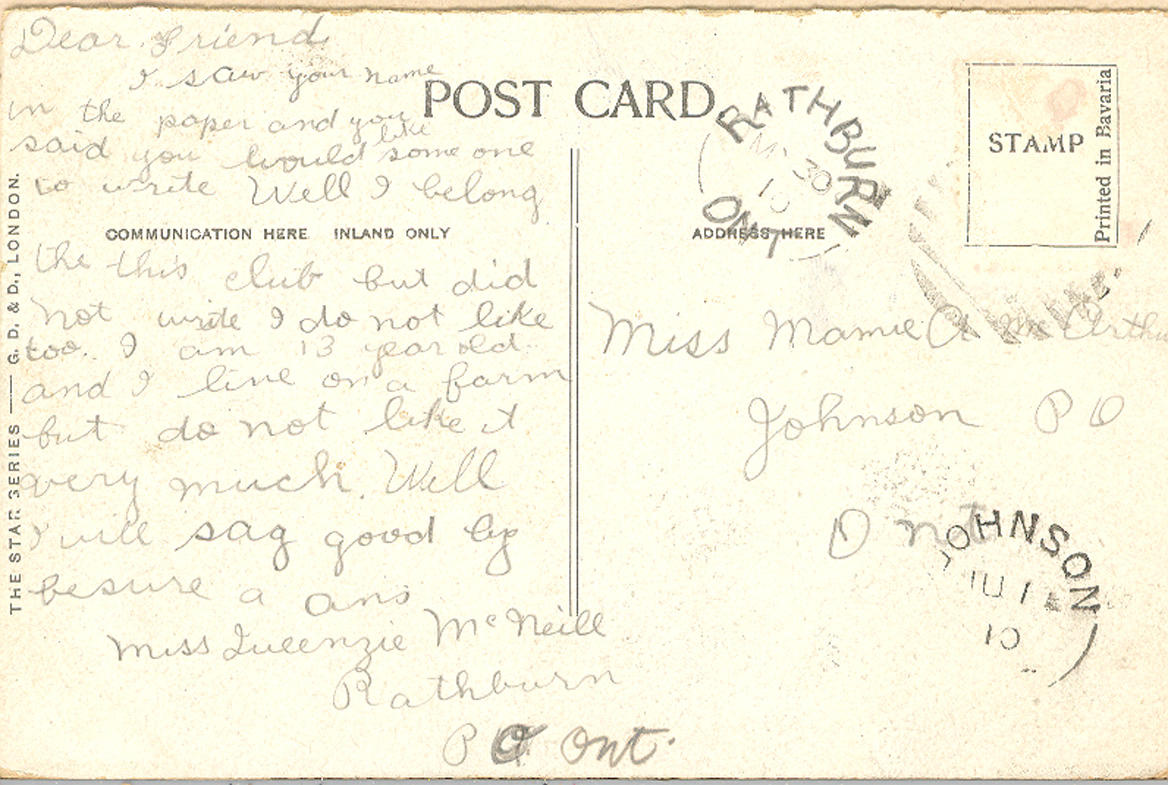 Dear Friend
I saw your name
in the paper and you
said you would like some one
to write Well I belong
the this club but did
not write I do not like
too. I am 13 year old
and I live on a farm
but do not like it
very much. Well
I will say good by
besure a ans
Miss Queenzie McNeill
Rathburn
P O Ont.
POST CARD
COMMUNICATION HERE INLAND ONLY
ADDRESS HERE
THE STAR SERIES — G. D. & D., LONDON.
STAMP
Printed in Bavaria
RATHBURN
MY 30
10
ONT
Miss Mamie A McArthu
Johnson P O
Ont
JOHNSON
JU 1
10